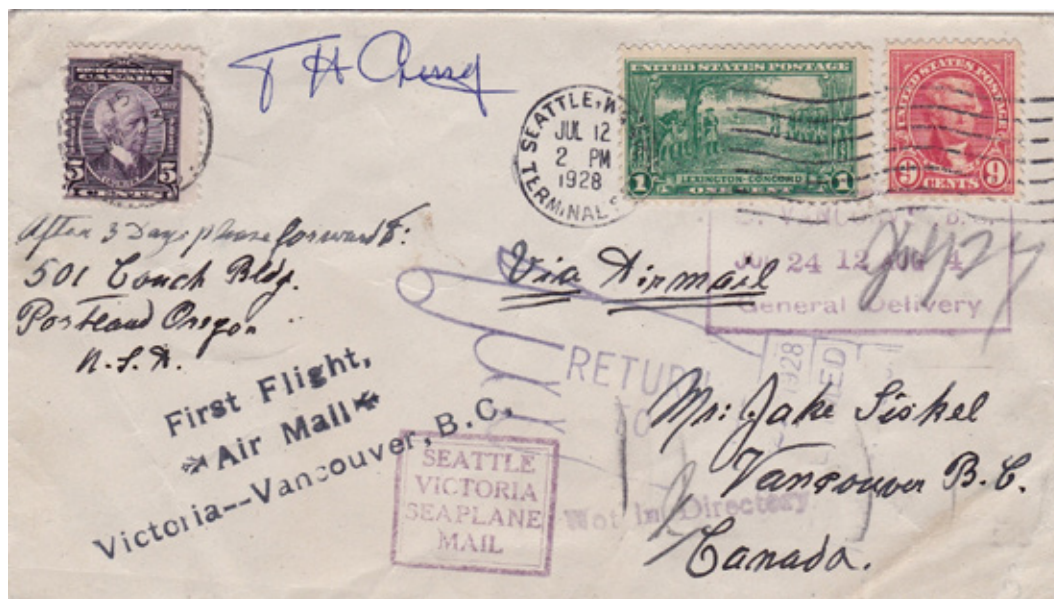 CONFEDERATION
CANADA
5 5
CENTS
T H
SEATTLE, W
JUL 12
2 PM
1928
TERMINAL
UNITED STATES POSTAGE
LEXINGTON-CONCORD
1 ONE CENT 1
UNITED STATES POSTAGE
9 CENTS 9
After 3 Days please forward to:
501 Couch Bldg.
Portland Oregon
U.S.A.
Via Airmail
VANCOUVER B.C.
JUL 24 12 AUG 4
General Delivery
First Flight,
Air Mail
Victoria--Vancouver, B.C.
RETURN
TO
1928
SEATTLE
VICTORIA
SEAPLANE
MAIL
Not In Directory
Mr. Jake Siskel
Vancouver B.C.
Canada.